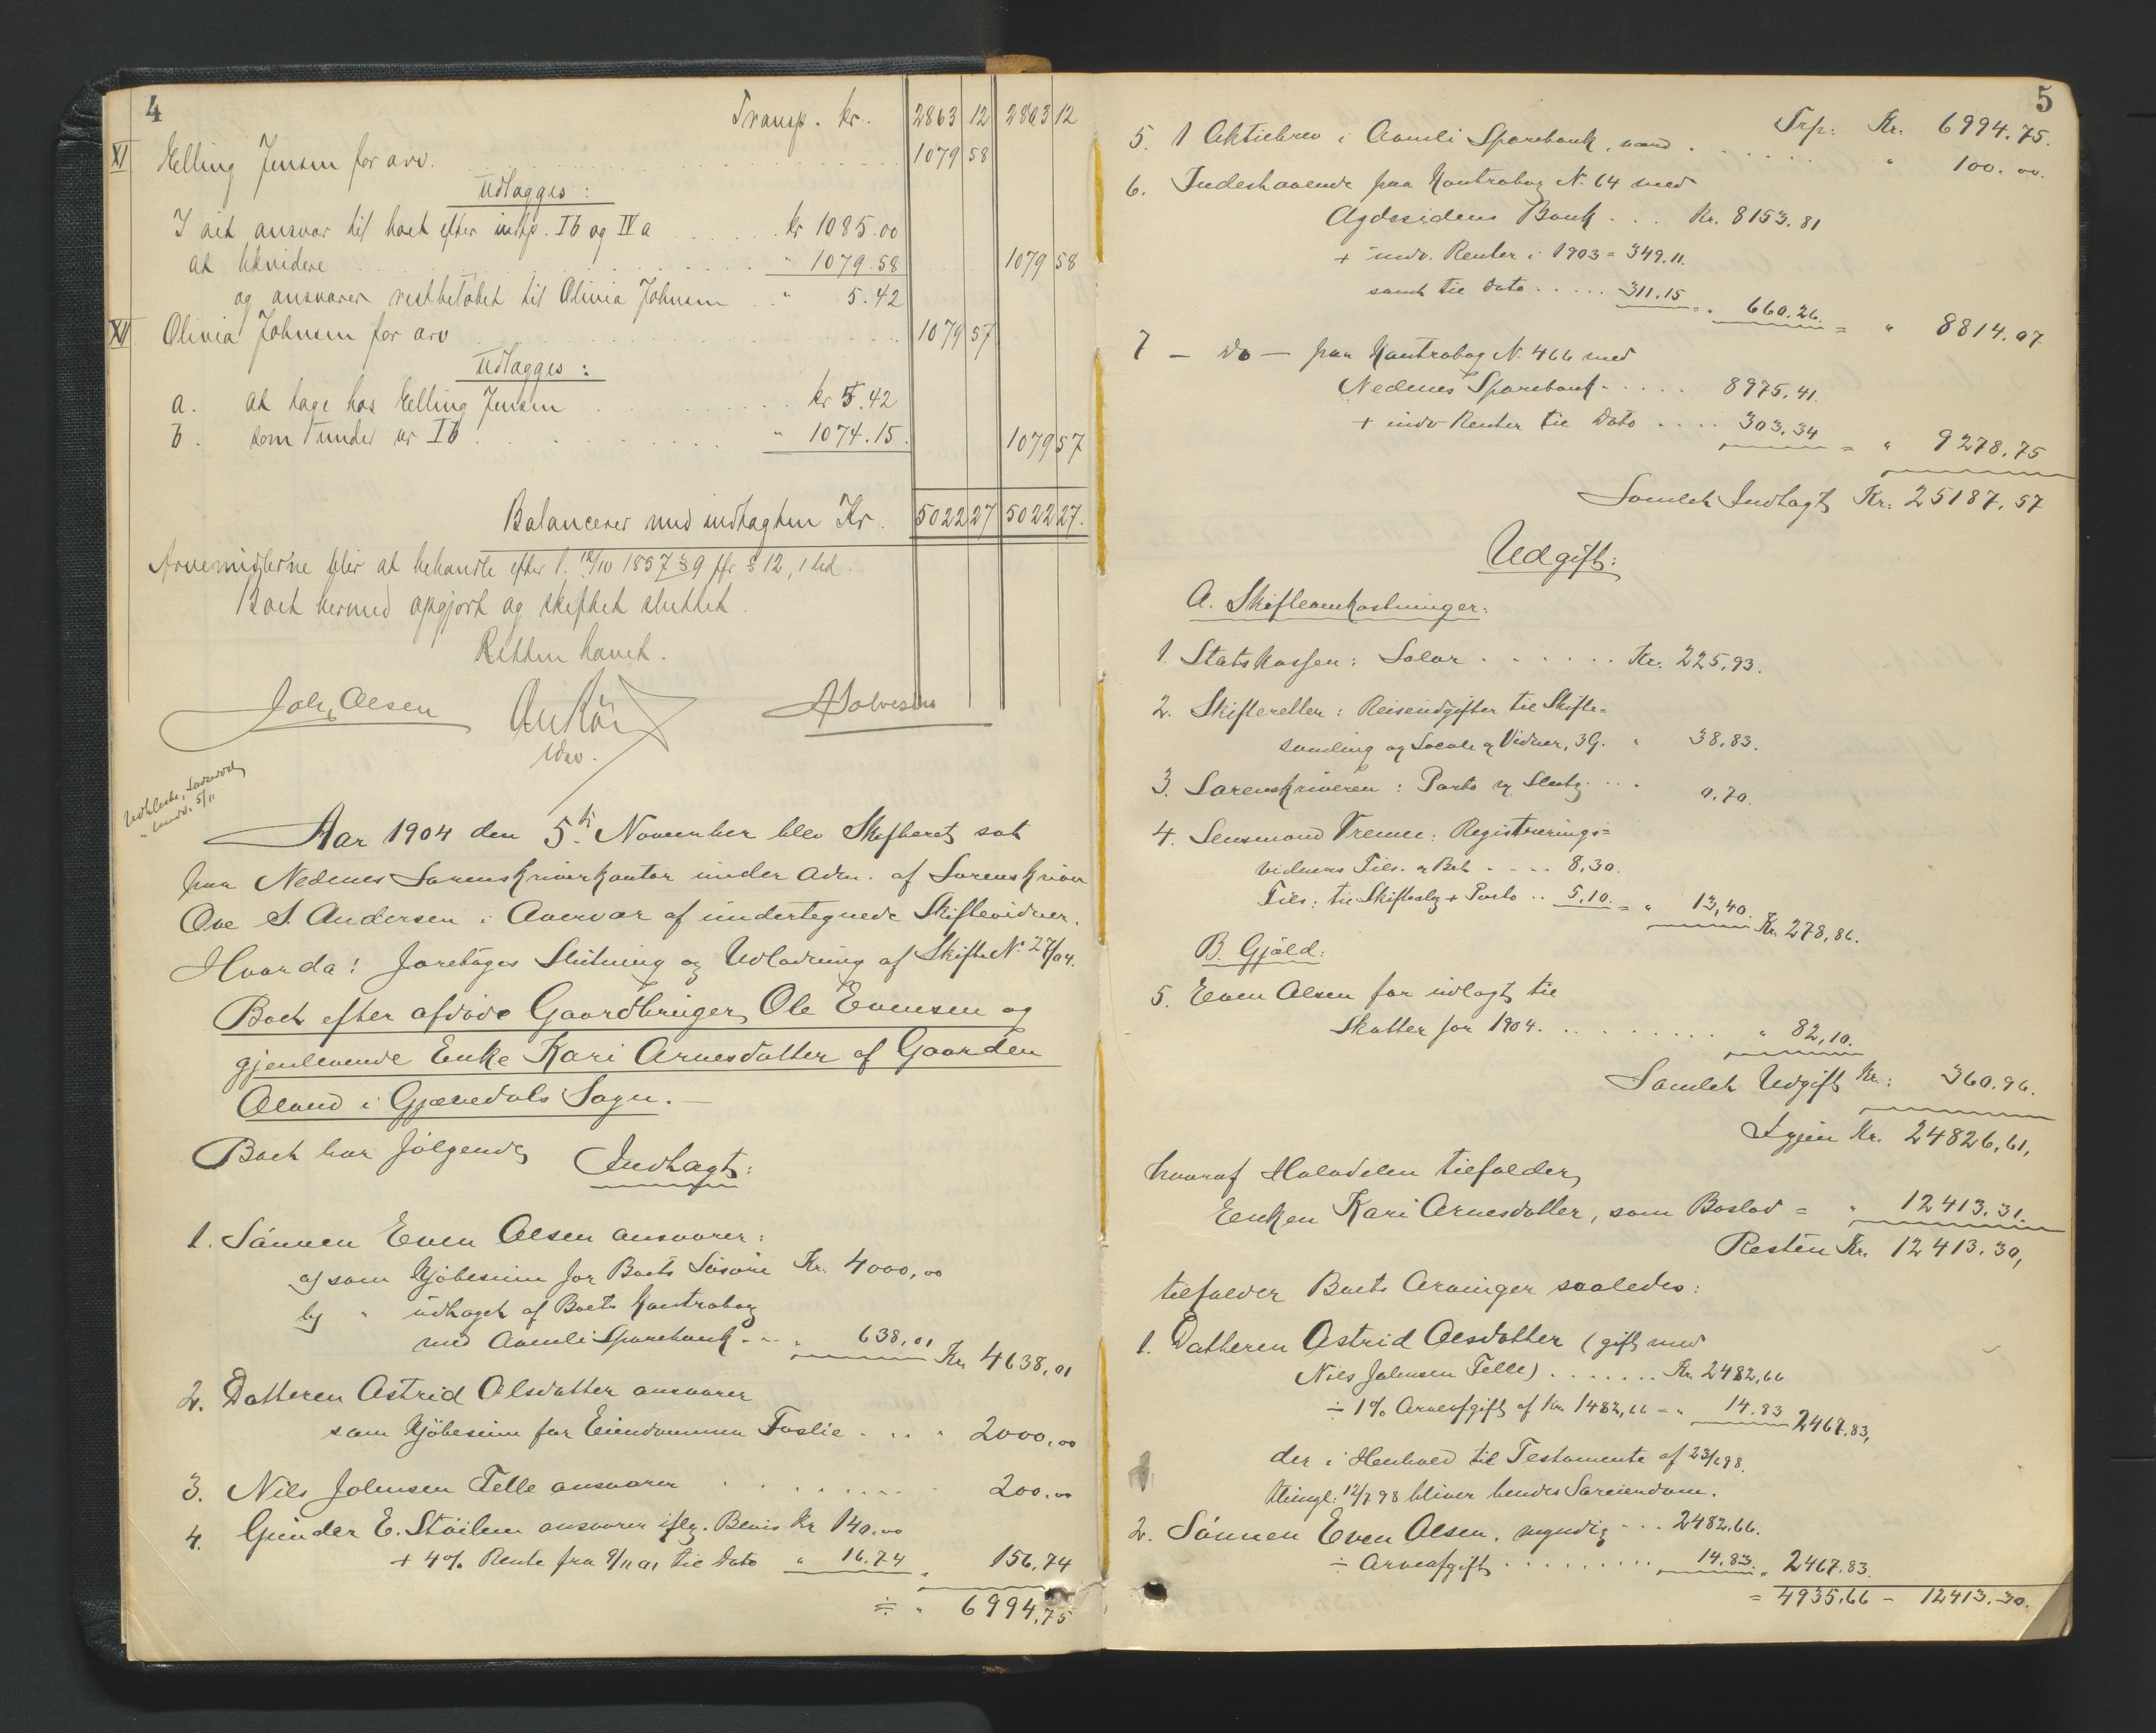 4
Transp. kr. 2863 12 2863 12
XI Elling Jensen for arv. 1079 58
Udlægges:
I sit ansvar til boet efter indtp. Ib og IVa kr 1085.00
at likvidere " 1079.58 1079 58
og ansvarer restbeløbet til Olivia Johnsen " 5.42
XII Olivia Johnsen for arv 1079 57
Udlægges:
a. at tage hos Elling Jensen kr 5.42
b. som under nr Ib " 1074.15. 1079 57
Balancerer med indtægten Kr. 5022 27 5022 27.
Arvemidlerne blir at behandle efter l. 12/10 1857 § 9 jfr § 12, 1 led.
Boet hermed opgjort og skiftet sluttet.
Retten hævet.
Johs Olsen
A Solvesen
Aar 1904 den 5te November blev Skifteret sat
paa Nedenes Sorenskriverkontor under Adm. af Sorenskriver
Ove S. Andersen i Overvær af undertegnede Skiftevidner.
Hvorda: foretoges Slutning og Udlodning af Skifte No 27/04.
Boet efter afdøde Gaardbruger Ole Evensen og
gjenlevende Enke Kari Arnesdatter af Gaarden
Øland i Gjøvedals Sogn. —
Boet har følgende Indtægt:
1. Sønnen Even Olsen ansvarer:
a) som Kjøbesum for Boets Løsøre Kr. 4000,00
b) " udtaget af Boets Kontrabog
med Aamli Sparebank " 638,01 Kr. 4638,01
2. Datteren Astrid Olsdatter ansvarer
som Kjøbesum for Eiendommen Foslie " 2000,00
3. Nils Johnsen Felle ansvarer 200.00
4. Gunder E. Støilen ansvarer iflg. Bevis Kr 140.00
+ 4% Rente fra 9/11 01 til Dato " 16.74 " 156.74
" 6994.75
5
Trp: Kr. 6994.75.
5. 1 Aktiebrev i Aamli Sparebank, værd " 100.00.
6. Indestaaende paa Kontrabog No 64 med
Agdesidens Bank Kr. 8153.81
+ indv. Renter i 1903 = 349.11.
samt til Dato 311.15 = " 660.26. = " 8814.07
7 — Do — paa Kontrabog No 466 med
Nedenes Sparebank 8975,41.
+ indv Renter til Dato 303.34 = " 9278.75
Samlet Indtægt Kr. 25187.57
Udgift:
A. Skifteomkostninger:
1. Statskassen: Salær Kr. 225,93.
2. Skifteretten: Reiseudgifter til Skifte-
samling og Locale og Vidner, 3G. " 38,83.
3. Sorenskriveren: Porto og 0.70.
4. Lensmand Tremen: Registrerings-
vidners Tils. 8,30.
Tils: til Skiftesl + Porto 5,10. = " 13,40. Kr. 278,86.
B. Gjæld:
5. Even Olsen for udlagt til
Skatter for 1904. " 82,10.
Samlet Udgift Kr: 360.96.
Igjen Kr. 24826,61,
hvoraf Halvdelen tilfalder
Enken Kari Arnesdatter, som Boslod = " 12413.31.
Resten Kr. 12413.30,
tilfalder Boets Arvinger saaledes:
1. Datteren Astrid Olsdatter (gift med
Nils Johnsen Felle) Kr. 2482,66
÷ 1% Arveafgift af Kr. 1482,66 = " 14.83 2467.83,
der i Henhold til Testamente af 23/6 98.
thingl: 12/7 98 bliver hendes Særeiendom.
2. Sønnen Even Olsen, myndig 2482.66.
÷ Arveafgift 14.83. " 2467.83.
= 4935.66 - 12413.30.